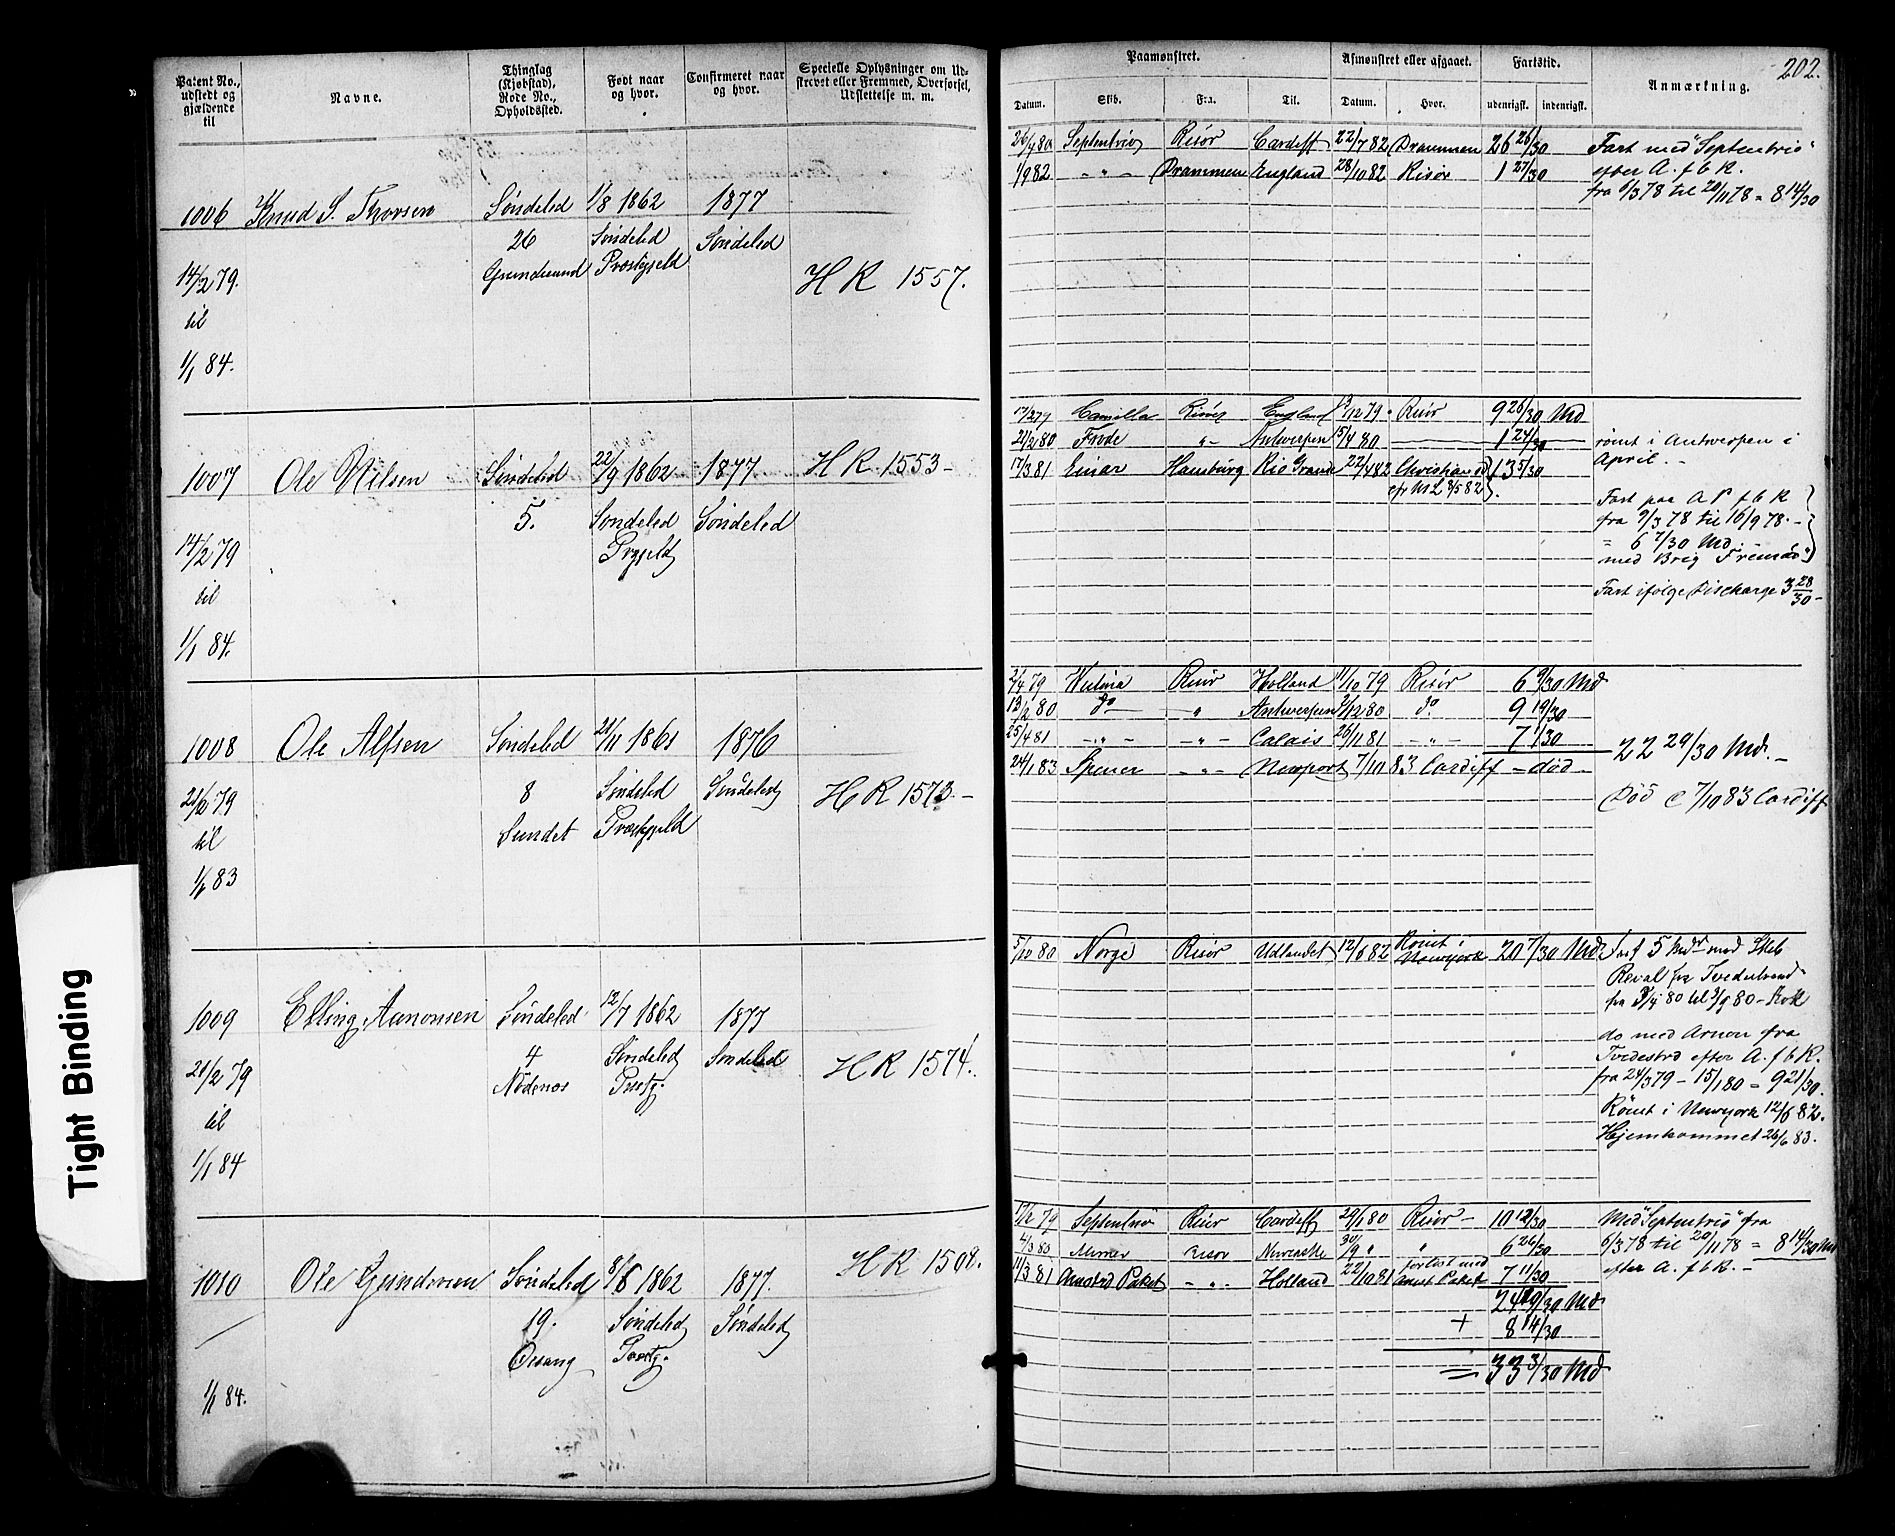 202.
Patent No., udstedt og gjældende til
Navne.
Thinglag (Kjøbstad), Rode No., Opholdssted.
Født naar og hvor.
Confirmeret naar og hvor.
Specielle Oplysninger om Udskrevet eller Fremmed, Overførsel, Udslettelse m. m.
Paamønstret.
Afmønstret eller afgaaet.
Fartstid.
Anmærkning.
Datum. Skib. Fra. Til. Datum. Hvor. udenrigsk. indenrigsk.
1006 Knud S. Thorsen Søndeled 1/8 1862 1877
26 Søndeled Søndeled
Grundesund Præstgjeld
14/2 79. H R 1557.
til
1/1 84.
26/4 80 Septentrio Risør Cardiff 22/7 82 Drammen 26 26/30
1/9 82 - " - Drammen England 28/10 82 Risør 1 27/30
Fart med "Septentrio"
efter A. f b R.
fra 6/3 78 til 20/11 78 = 8 14/30
1007 Ole Nilsen Søndeled 22/9 1862 1877 H R 1553 -
5. Søndeled Søndeled
Prgjeld
14/2 79
til
1/1 84.
17/2 79 Camilla Risør England 12/12 79 Risør 9 26/30 Md
21/2 80 Frode " - Antwerpen 15/4 80 1 24/30
17/3 81 Einar Hamburg Rio Grande 22/4 82 Christiansd 13 5/30
efr ML 8/5 82
rømt i Antwerpen i
April. -
Fart paa A P f b R
fra 9/3 78 til 16/9 78. -
= 6 7/30 Md.
med Brig
Fart ifølge Discharge 3 28/30 -
1008 Ole Alfsen Søndeled 21/11 1861 1876
8 Søndeled Søndeled
Sundet Præstgjeld
21/2 79 H R 1573. -
til
1/1 83
2/4 79 Risør Holland 11/10 79 Risør 6 9/30 Md
13/2 80 do " Antwerpen 2/12 80 do 9 19/30
25/4 81 - " - - " - Calais 26/11 81 - " - 7 1/30
24/1 83 - " - Newport 7/10 83 Cardiff - død
22 29/30 Md. -
Død d 7/10 83 Cardiff
1009 Elling Aanonsen Søndeled 12/7 1862 1877
4 Søndeled Søndeled
Nødenes Prestg.
21/2 79 H R 1574.
til
1/1 84
5/10 80 Norge Risør Udlandet 12/6 82 Rømt i Newyork 20 7/30 Md
Fart 5 Mdr med Skib
Reval fra Tvedestrand
fra 3/4 80 til 3/9 80 - Kok
do med Arnon fra
Tvedestrd efter A. f b R.
fra 24/3 79 - 15/1 80 = 9 21/30.
Rømt i Newyork 12/6 82.
Hjemkommet 26/6 83.
1010 Ole Gundersen Søndeled 8/8 1862 1877. H R 1508.
19. Søndeled Søndeled
Øisang Prestg.
1/1 84.
17/2 79 Septentrio Risør Cardiff 29/1 80 Risør - 10 12/30
4/3 80 Mimer Risør Newcastle 30/9 " " 6 26/30
11/3 81 Arnestrd Paket - " - Holland 22/10 81 forlist med Arnst Paket 7 11/30
24 19/30 Md
+ 8 14/30
= 33 3/30 Md
Med "Septentrio" fra
6/3 78 til 20/11 78 = 8 14/30 Md
efter A. f b R. -
Tight Binding